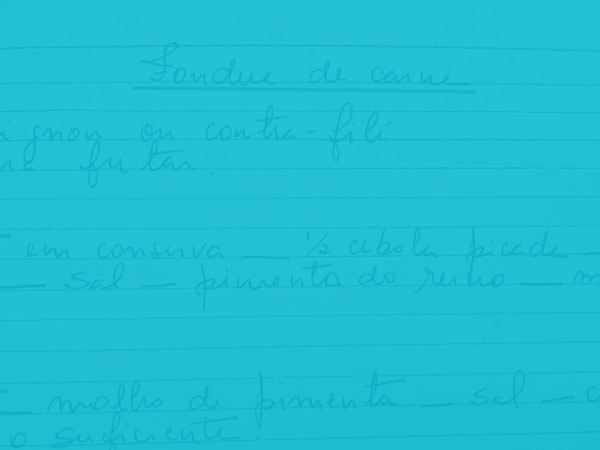 Fondue de carne
ignon ou contra-filé
ra fritar.
em conserva — ½ cebola picada —
— sal — pimenta do reino — m
— molho de pimenta — sal — c
o suficiente.